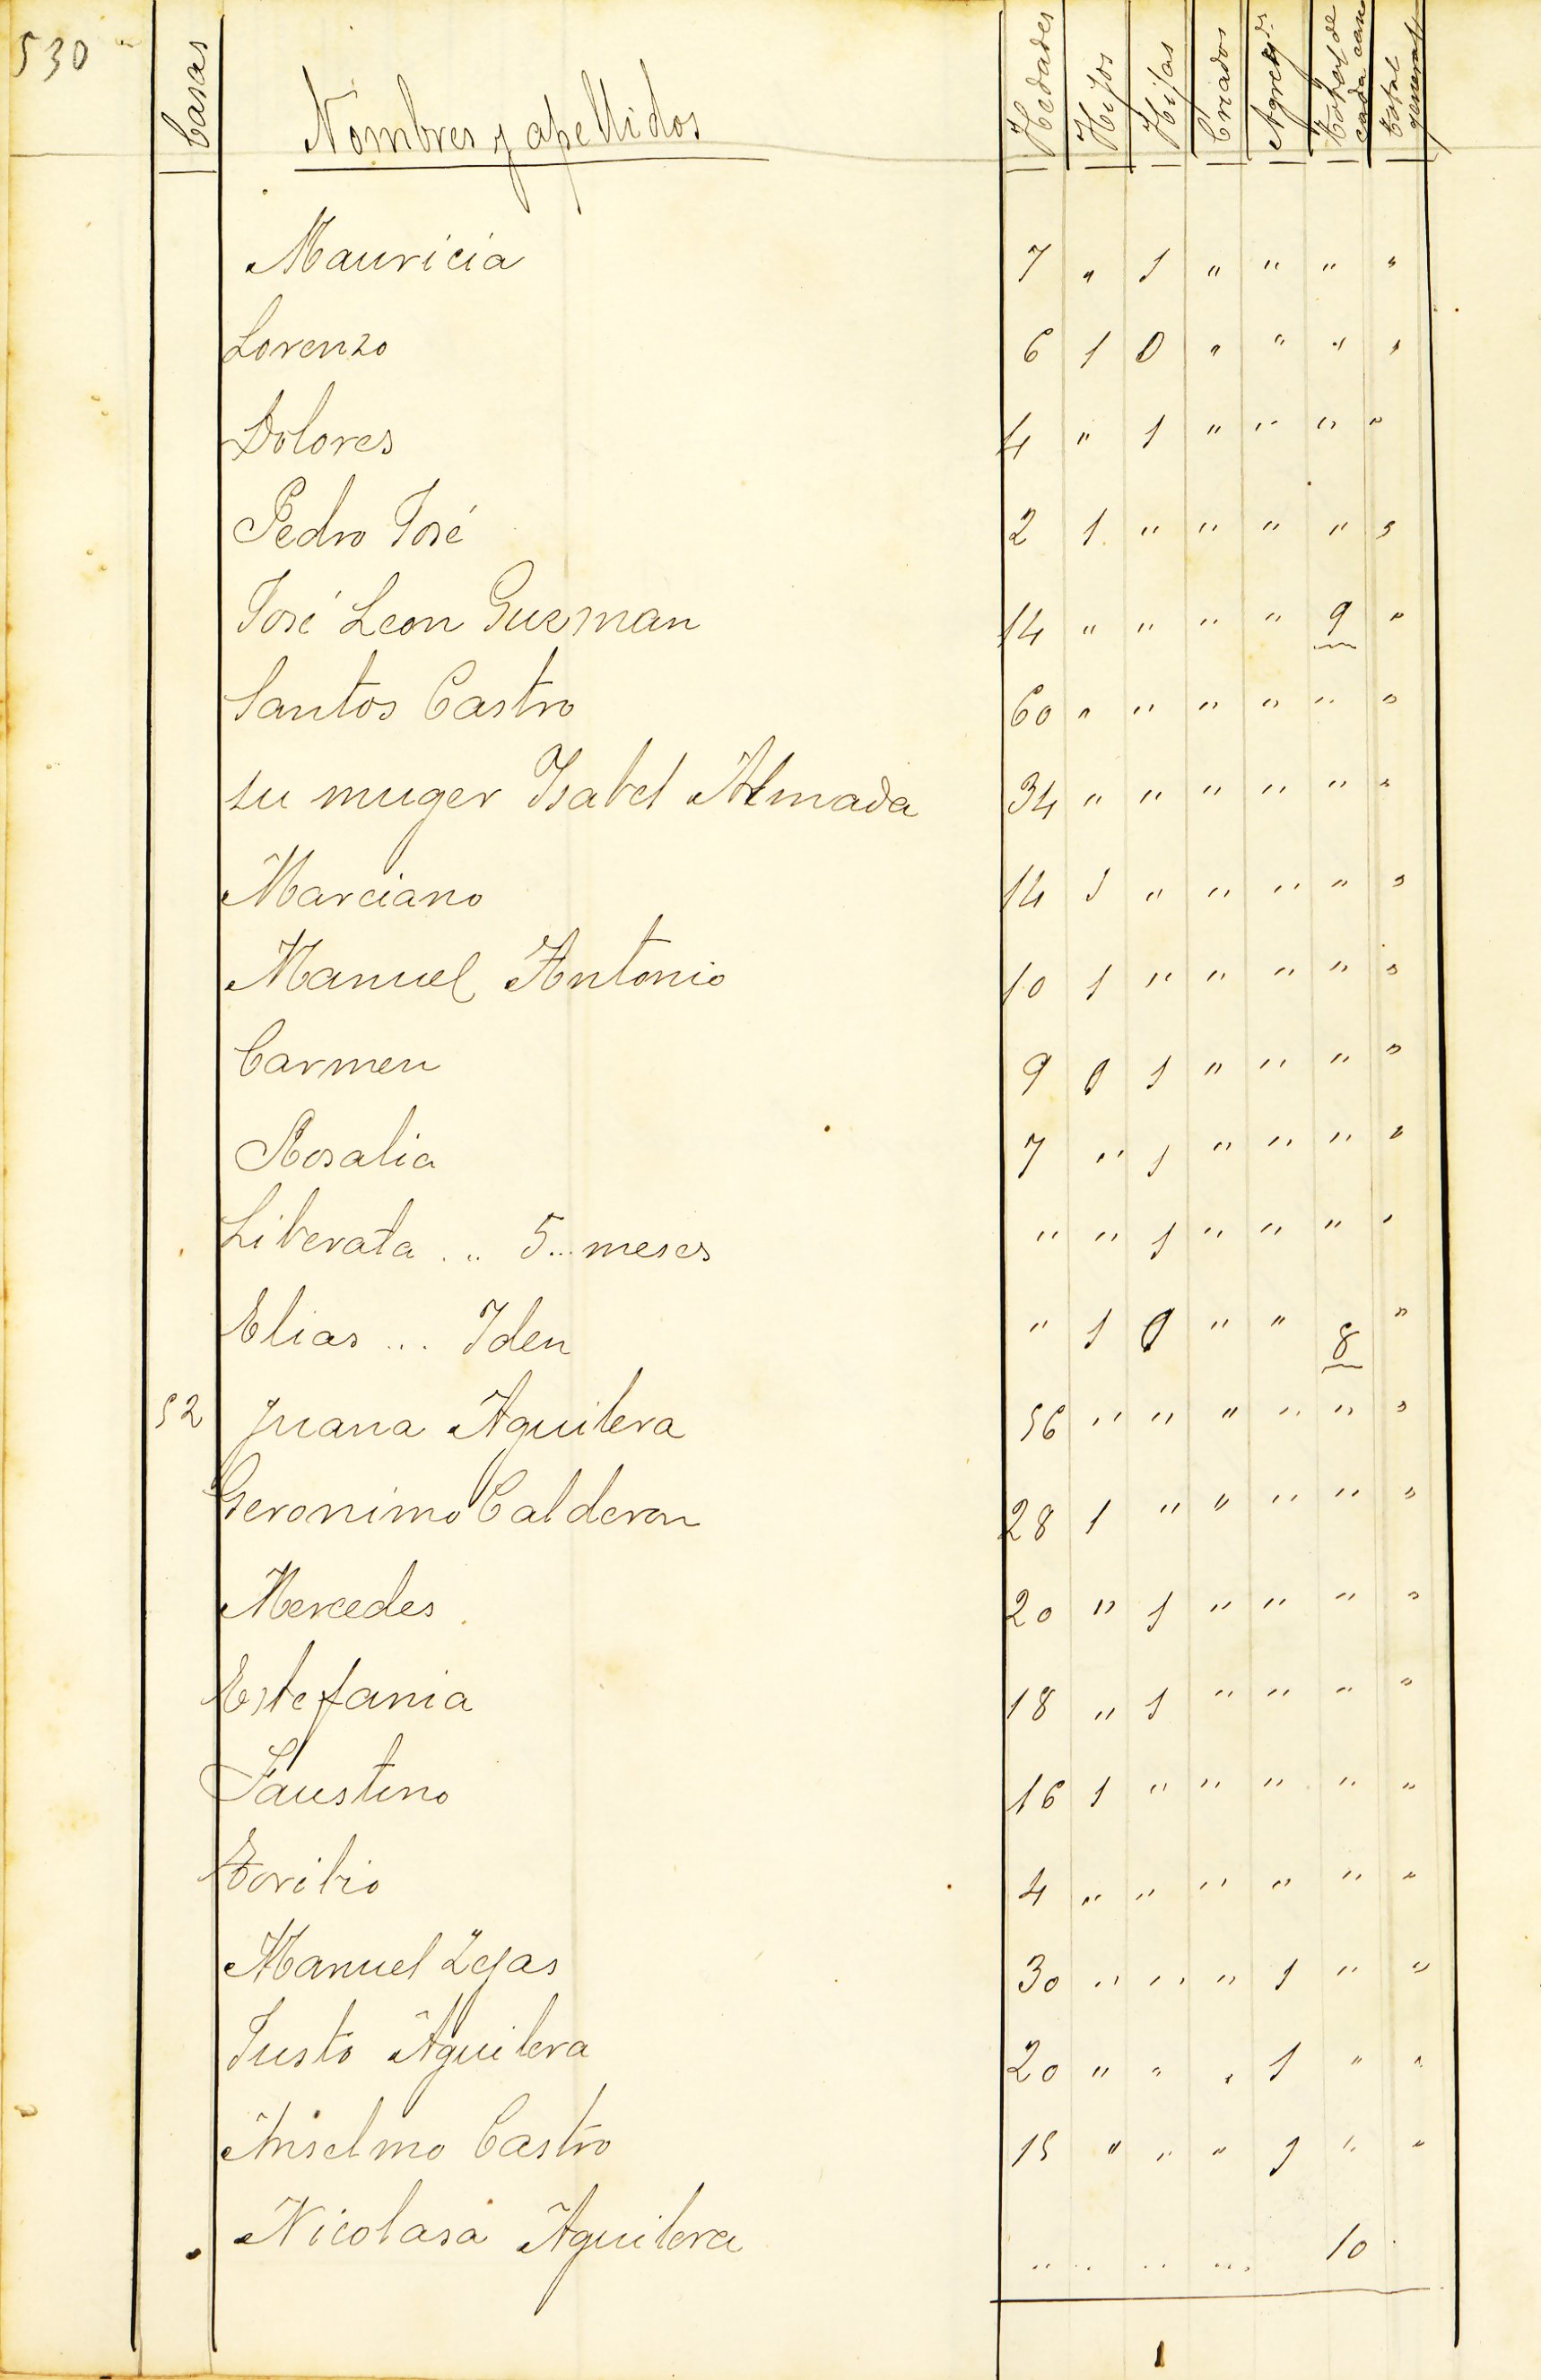 530
Casas Nombres y apellidos Hedades Hijos Hijas Criados Agreg.dos Total de cada casa Total general
Mauricia 7 " 1 " " " "
Lorenzo 6 1 0 " " " "
Dolores 4 " 1 " " " "
Pedro José 2 1 " " " " "
José Leon Guzman 14 " " " " 9 "
Santos Castro 60 " " " " " "
su muger Ysabel Almada 34 " " " " " "
Marciano 14 1 " " " " "
Manuel Antonio 10 1 " " " " "
Carmen 9 0 1 " " " "
Rosalia 7 " 1 " " " "
Liberata .. 5... meses " " 1 " " " "
Elias ... Iden " 1 0 " " 8 "
52 Juana Aguilera 56 " " " " " "
Geronimo Calderon 28 1 " " " " "
Mercedes 20 " 1 " " " "
Estefania 18 " 1 " " " "
Faustino 16 1 " " " " "
Toribio 4 " " " " " "
Manuel 30 " " " 1 " "
Justo Aguilera 20 " " " 1 " "
Anselmo Castro 15 " " " 1 " "
Nicolasa Aguilera .. .. .. ... 10
1